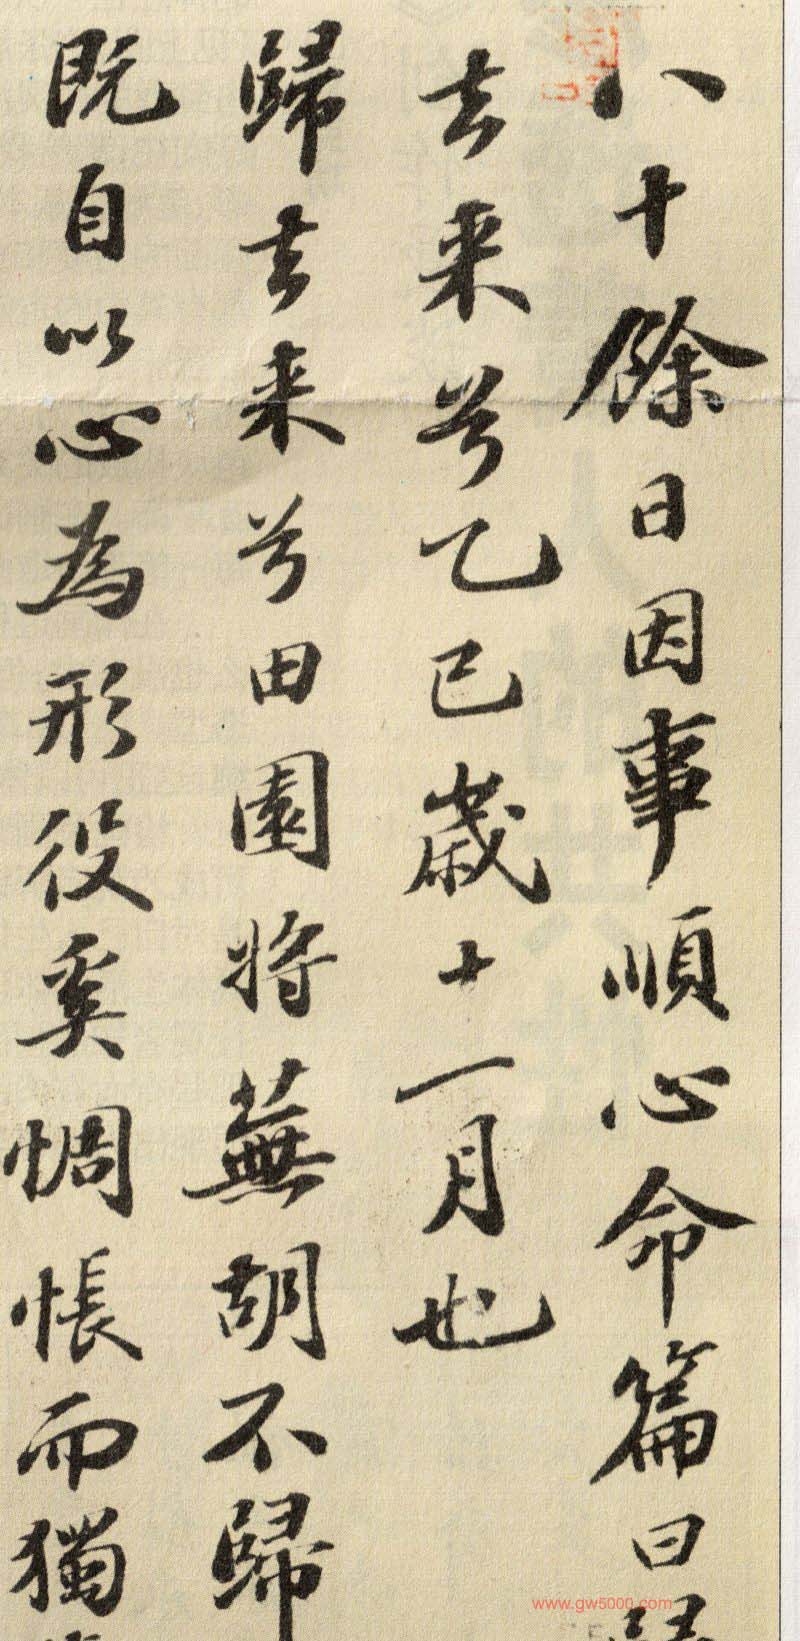 八十餘日因事順心命篇曰歸
去来兮乙巳歲十一月也
歸去来兮田園將蕪胡不歸
既自以心為形役奚惆悵而獨
www.gw5000.com